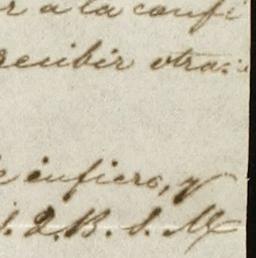 r a la confi
recibir otras
e infiero, y
S. Q. B. S. M